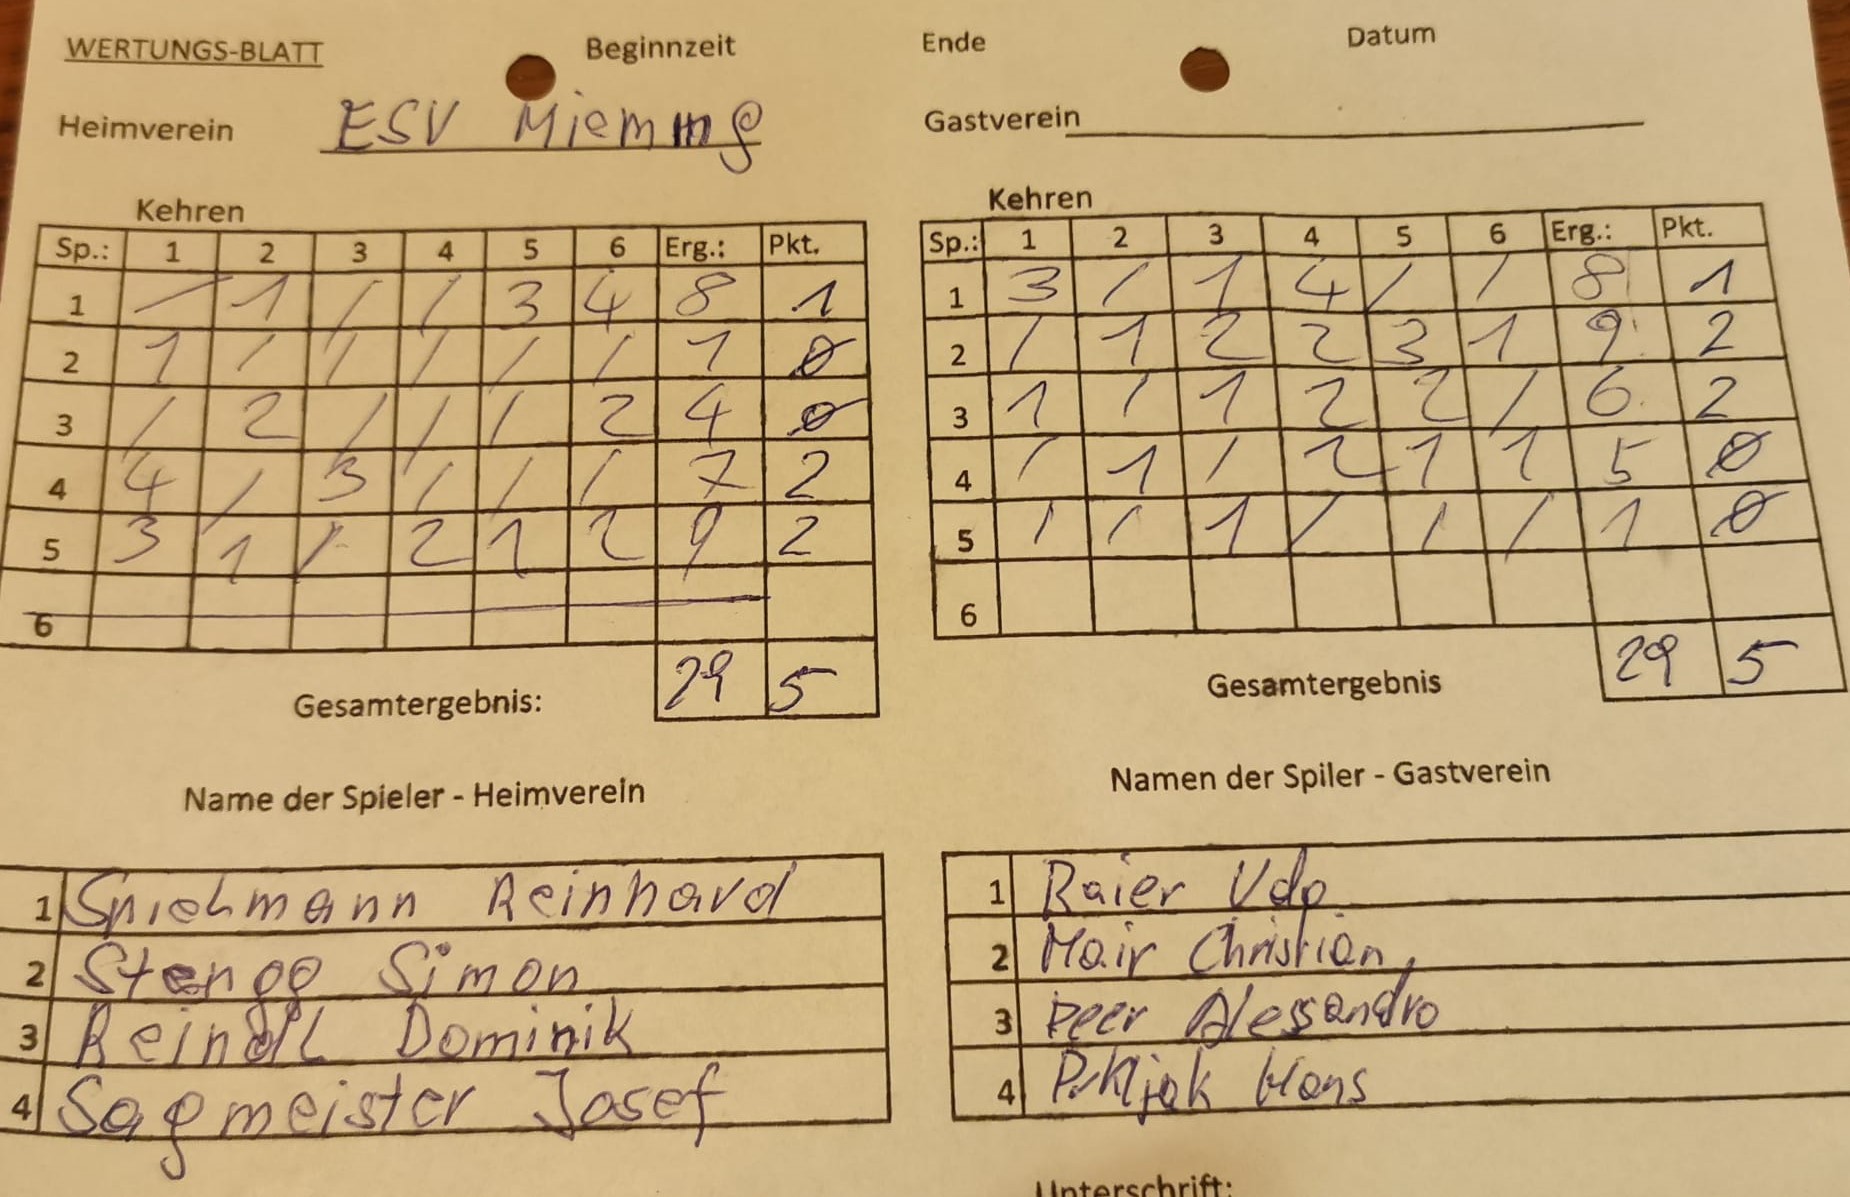 WERTUNGS-BLATT Beginnzeit Ende Datum
Heimverein ESV Miemmg Gastverein
Kehren Kehren
Sp.: 1 2 3 4 5 6 Erg.: Pkt. Sp.: 1 2 3 4 5 6 Erg.: Pkt.
1 / 1 / / 3 4 8 1 1 3 / 1 4 / / 8 1
2 1 / / / / / 1 0 2 / 1 2 2 3 1 9 2
3 / 2 / / / 2 4 0 3 1 / 1 2 2 / 6 2
4 4 / 3 / / / 7 2 4 / 1 / 2 1 1 5 0
5 3 1 / 2 1 2 9 2 5 / / 1 / / / 1 0
6 6
Gesamtergebnis: 29 5 Gesamtergebnis 29 5
Name der Spieler - Heimverein Namen der Spiler - Gastverein
1 Spielmann Reinhard 1 Raier Udo
2 Stengg Simon 2 Mair Christian
3 Reindl Dominik 3 Peer Alessandro
4 Sagmeister Josef 4 Hans
Unterschrift: